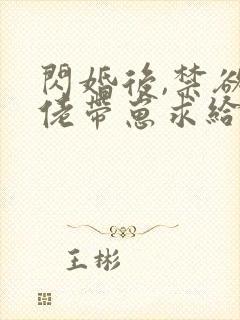 閃婚後,禁欲
佬帶崽求給
王彬